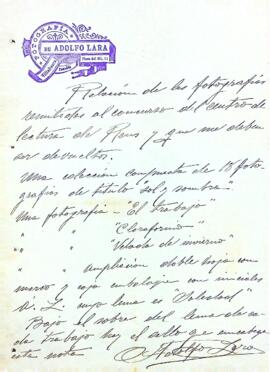 FOTOGRAFÍA
DE ADOLFO LARA
Plaza del
Relacion de las fotografias
remitidas al concurso del Centro de
lectura de Reus y que me deben
ser devueltas.
Una coleccion compuesta de 18 foto-
grafias de titulo "Sol y sombra"
Una fotografia - "El trabajo"
" " "Cloroformo"
" " "Velada de invierno"
" " ampliación doble hoja con
marco y caja embalage con iniciales
A. L. cuyo lema es "Soledad"
Bajo el sobre del lema de ca-
da trabajo hay el sello que encabeza
esta nota
Adolfo Lara